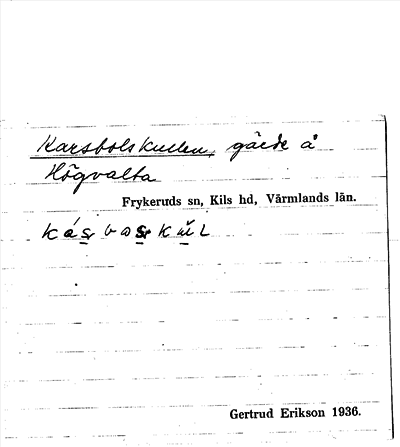 Karsbolskullen, gärde å
Högvalta
Frykeruds sn, Kils hd, Värmlands län.
Gertrud Erikson 1936.